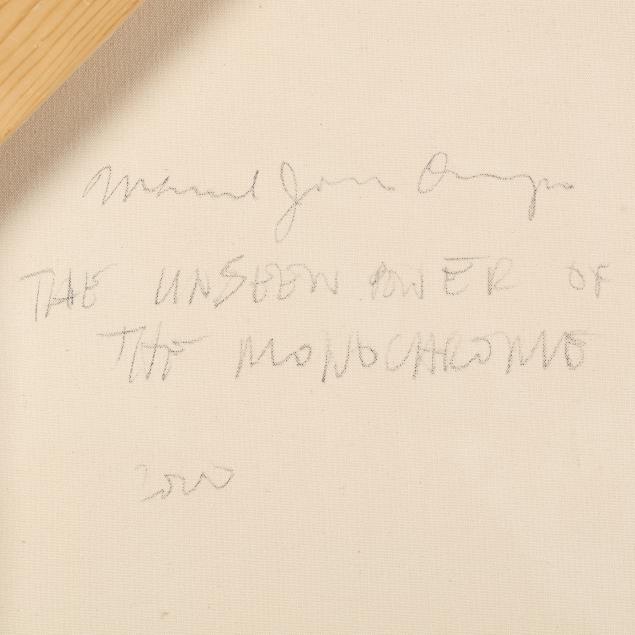 THE UNSEEN POWER OF
THE MONOCHROME
2000